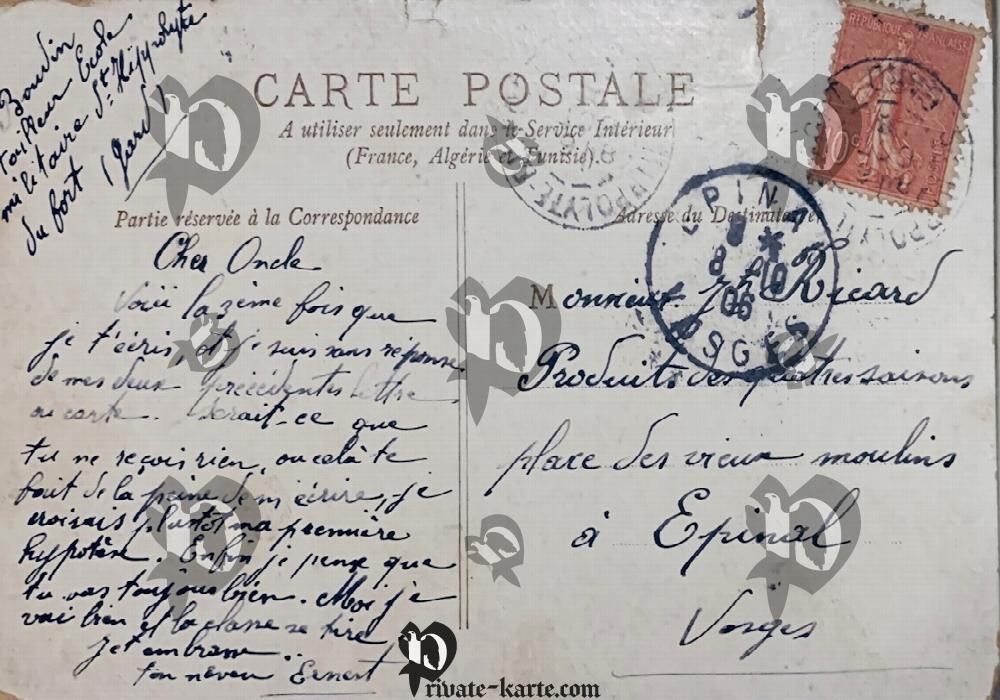 Boudin
tailleur Ecole
militaire St Hippolyte
du fort (Gard)
CARTE POSTALE
A utiliser seulement dans le Service Intérieur
(France, Algérie et Tunisie).
REPUBLIQUE FRANCAISE
10c
POSTES
HIPPOLYTE
Partie réservée à la Correspondance
Cher Oncle
Voici la 3ème fois que
je t'écris, et je suis sans réponse
de mes deux précédentes lettre
ou carte. Serait-ce que
tu ne reçois rien, ou celà te
fait de la peine de m'écrire, je
croirais plustôt ma première
hypotèse. Enfin je pense que
tu vas toujours bien. Moi je
vai bien et la classe se tire
Je t'embrasse
ton neveu Ernest
Adresse du Destinataire
EPINAL
8 *
8 10
06
VOSGES
Monsieur Jh Ricard
Produits des quatres saisons
place des vieux moulins
à Epinal
Vosges
Private-karte.com